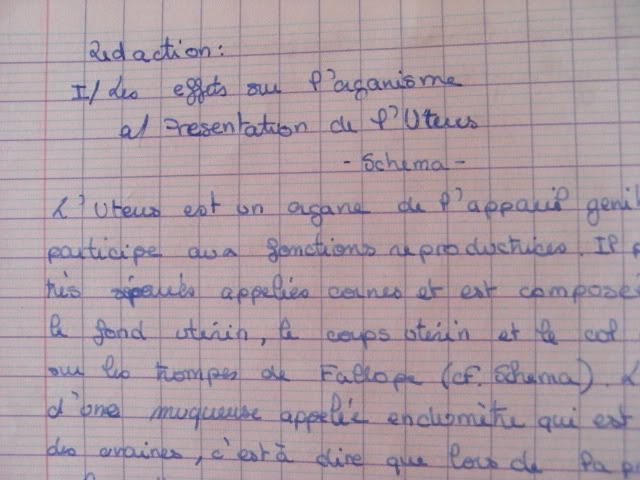 Rédaction:
I/ Les effets sur l'organisme
a/ Présentation de l'Utérus
- Schéma -
L'Utérus est un organe de l'appareil génit
participe aux fonctions reproductrices. Il p
très appelées cornes et est compose
le fond utérin, le corps utérin et le col
sur les trompes de Fallope (cf. Schéma). L
d'une muqueuse appelée endomètre qui est
des ovaires, c'est à dire que lors de la p